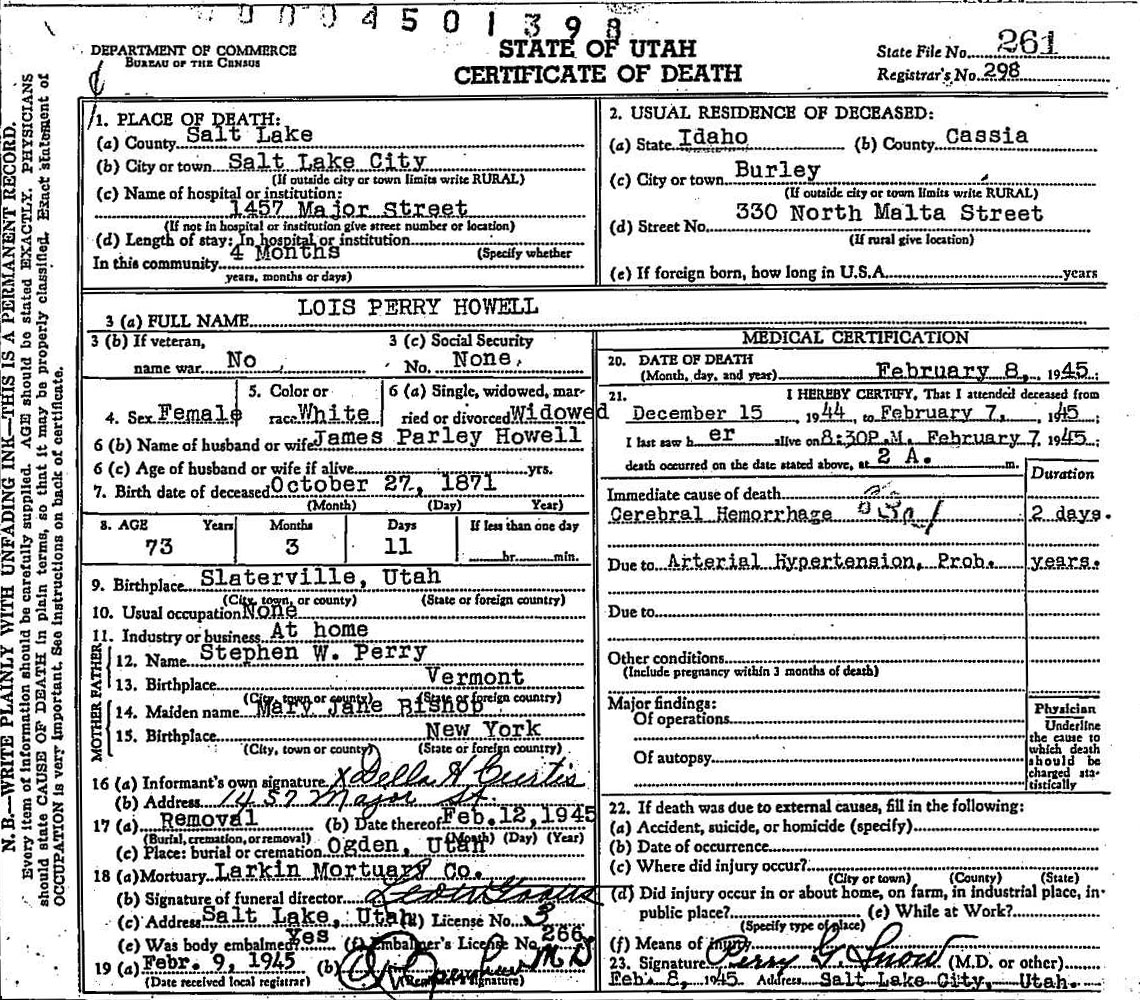 0004501398
DEPARTMENT OF COMMERCE
BUREAU OF THE CENSUS
STATE OF UTAH
CERTIFICATE OF DEATH
State File No. 261
Registrar's No. 298
N. B.—WRITE PLAINLY WITH UNFADING INK—THIS IS A PERMANENT RECORD.
Every item of information should be carefully supplied. AGE should be stated EXACTLY. PHYSICIANS
should state CAUSE OF DEATH in plain terms, so that it may be properly classified. Exact statement of
OCCUPATION is very important. See instructions on back of certificate.
1. PLACE OF DEATH:
(a) County Salt Lake
(b) City or town Salt Lake City
(If outside city or town limits write RURAL)
(c) Name of hospital or institution:
1457 Major Street
(If not in hospital or institution give street number or location)
(d) Length of stay: In hospital or institution
(Specify whether
In this community 4 Months
years, months or days)
2. USUAL RESIDENCE OF DECEASED:
(a) State Idaho (b) County Cassia
(c) City or town Burley
(If outside city or town limits write RURAL)
(d) Street No. 330 North Malta Street
(If rural give location)
(e) If foreign born, how long in U.S.A. years
3 (a) FULL NAME LOIS PERRY HOWELL
3 (b) If veteran,
name war No
3 (c) Social Security
No. None
4. Sex Female
5. Color or
race White
6 (a) Single, widowed, mar-
ried or divorced Widowed
6 (b) Name of husband or wife James Parley Howell
6 (c) Age of husband or wife if alive yrs.
7. Birth date of deceased October 27, 1871
(Month) (Day) Year)
8. AGE Years Months Days If less than one day
73 3 11 hr. min.
9. Birthplace Slaterville, Utah
(City, town, or county) (State or foreign country)
10. Usual occupation None
11. Industry or business At home
FATHER
12. Name Stephen W. Perry
13. Birthplace Vermont
(City, town or county) (State or foreign country)
MOTHER
14. Maiden name Mary Jane Bishop
15. Birthplace New York
(City, town or county) (State or foreign country)
16 (a) Informant's own signature x Della H Curtis
(b) Address 1457 Major St.
17 (a) Removal (b) Date thereof Feb.12,1945
(Burial, cremation, or removal) (Month) (Day) (Year)
(c) Place: burial or cremation Ogden, Utah
18 (a) Mortuary Larkin Mortuary Co.
(b) Signature of funeral director
(c) Address Salt Lake, Utah License No. 3
(e) Was body embalmed? Yes (f) Embalmer's License No. 266
19 (a) Febr. 9, 1945 (b) M D
(Date received local registrar) (Registrar's signature)
MEDICAL CERTIFICATION
20. DATE OF DEATH
(Month, day, and year) February 8, 1945;
21. I HEREBY CERTIFY, That I attended deceased from
December 15, 1944, to February 7, 1945
I last saw h er alive on 8:30P.M. February 7 1945;
death occurred on the date stated above, at 2 A. m.
Duration
Immediate cause of death
Cerebral Hemorrhage 2 days.
Due to Arterial Hypertension, Prob. years.
Due to
Other conditions
(Include pregnancy within 3 months of death)
Major findings:
Of operations
Of autopsy
Physician
Underline
the cause to
which death
should be
charged sta-
tistically
22. If death was due to external causes, fill in the following:
(a) Accident, suicide, or homicide (specify)
(b) Date of occurrence
(c) Where did injury occur?
(City or town) (County) (State)
(d) Did injury occur in or about home, on farm, in industrial place, in
public place? (e) While at Work?
(Specify type of place)
(f) Means of injury
23. Signature Perry G. Snow (M.D. or other)
Feb. 8, 1945 Address Salt Lake City, Utah.